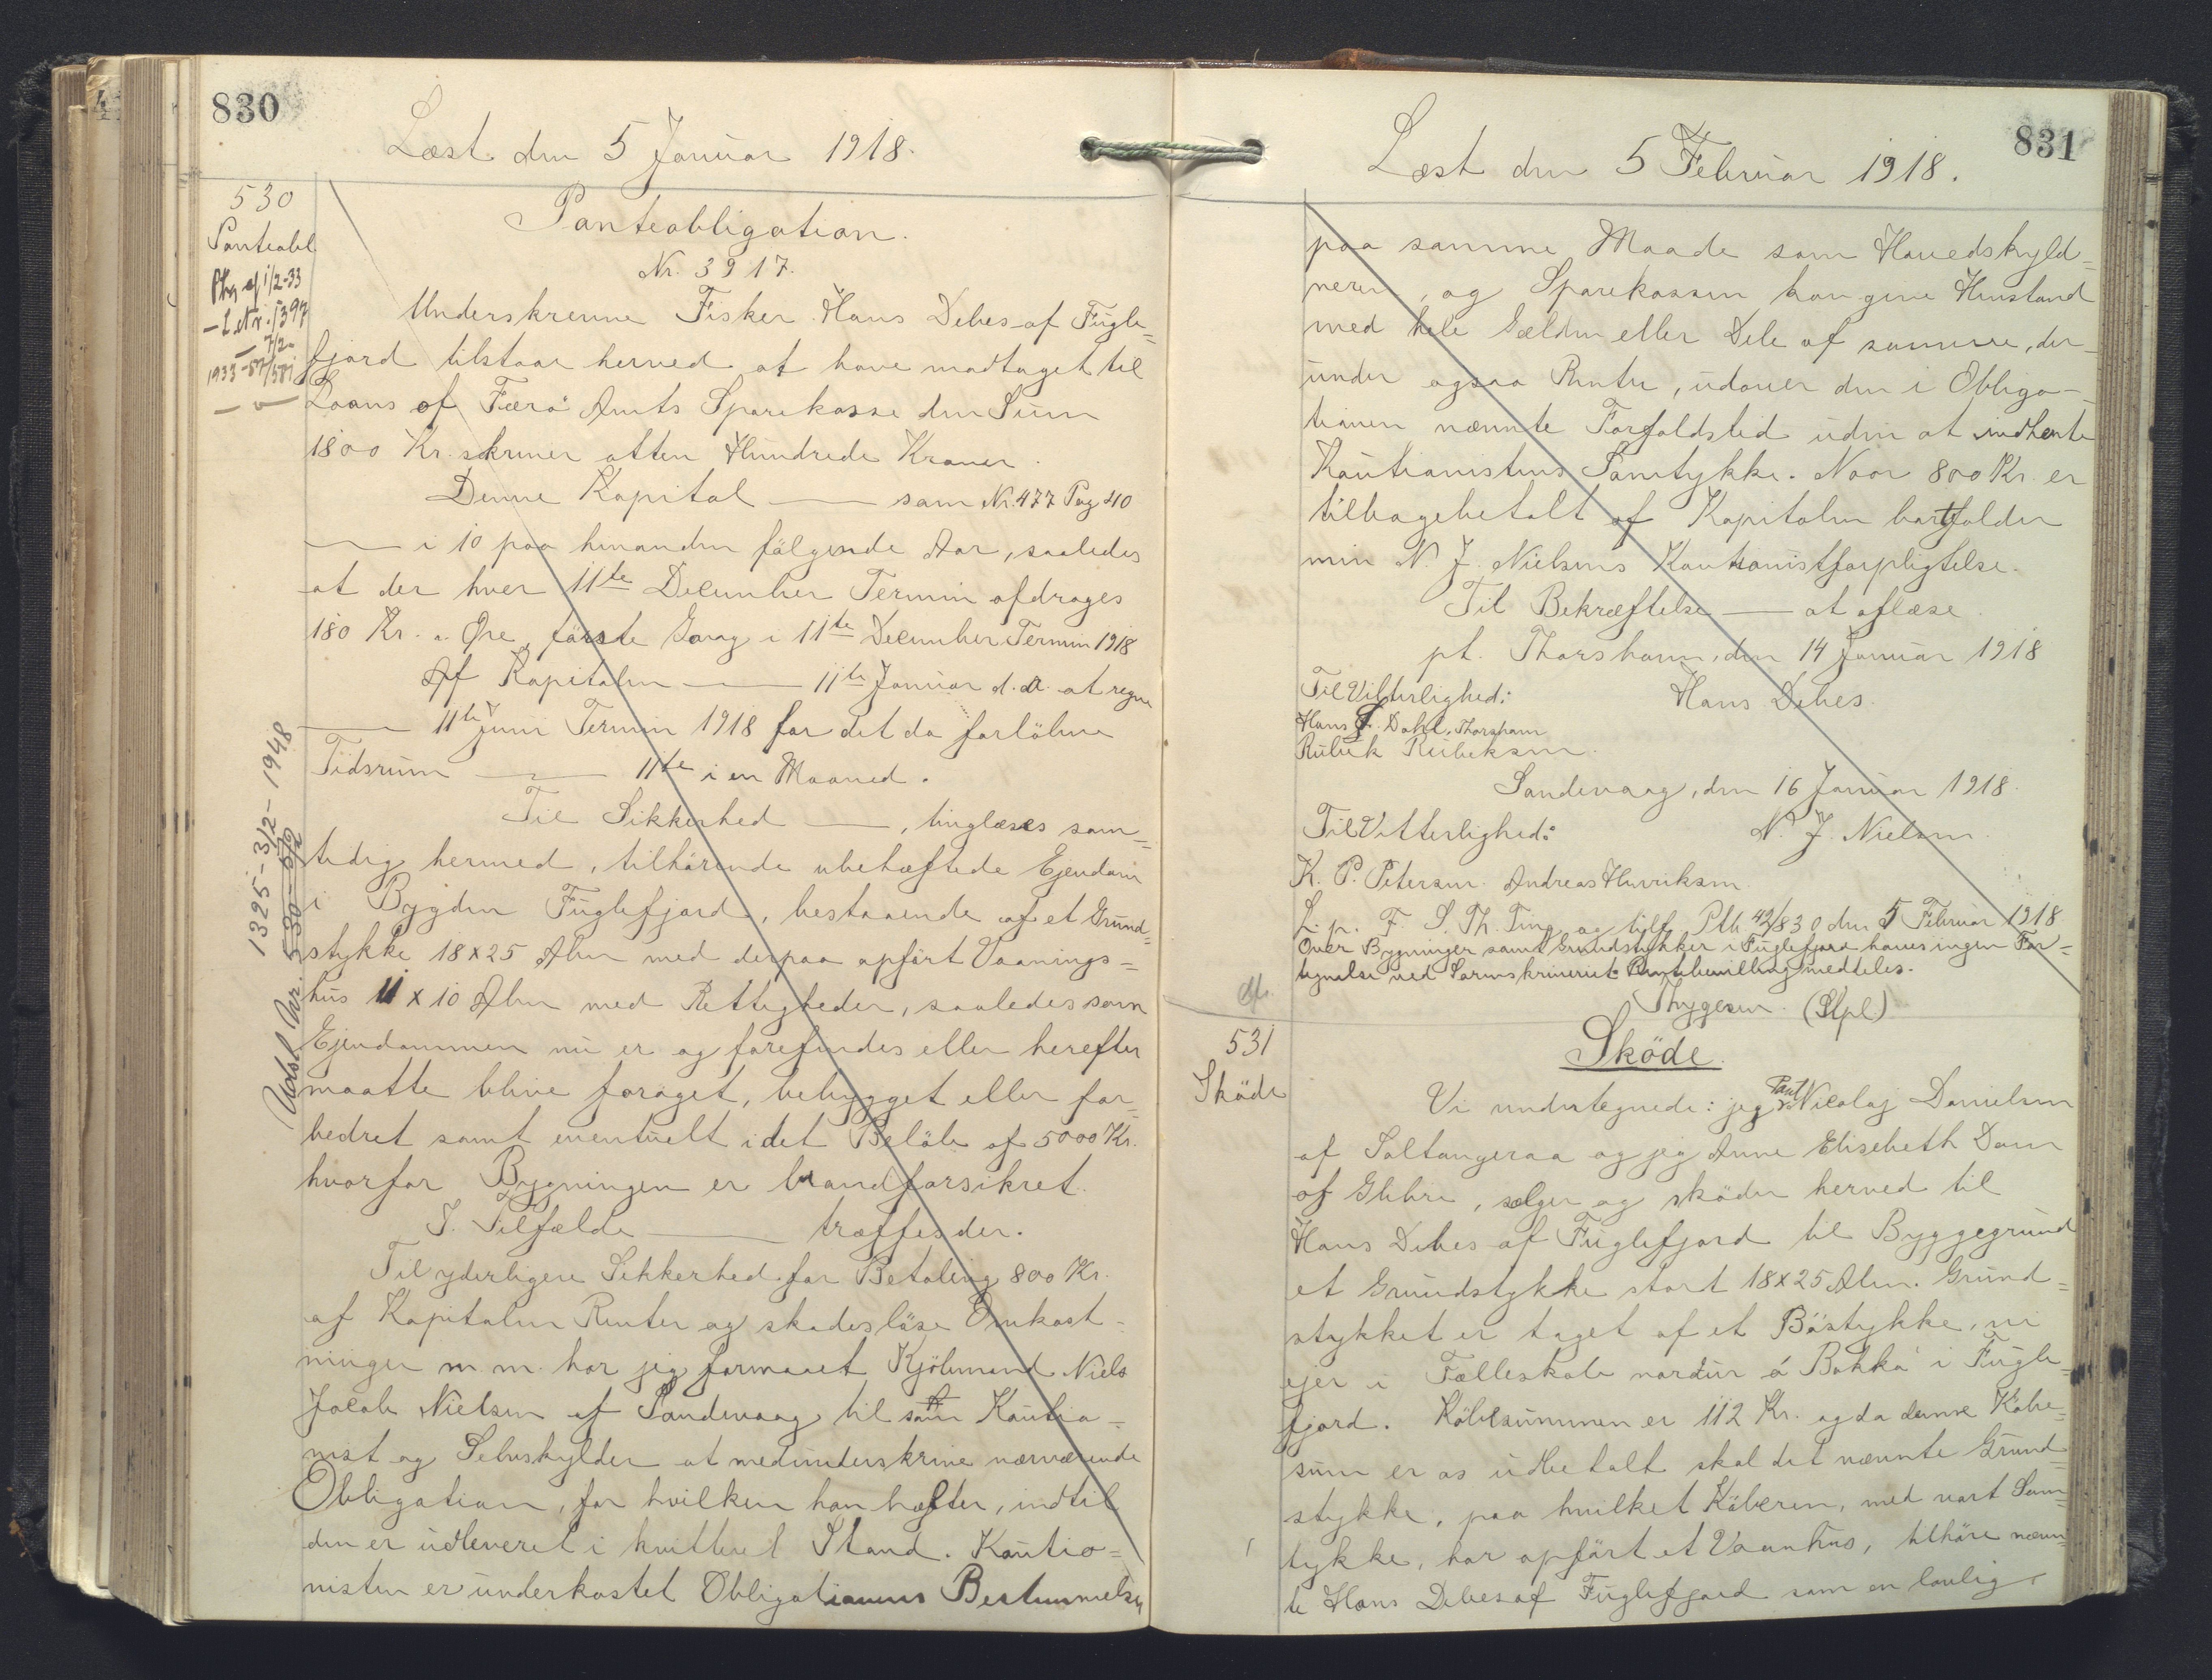 830
Læst den 5 Januar 1918.
530
Panteobl
1933
Panteobligation.
Nr. 3917.
Underskrevne Fisker Hans Debes af Fugle=
fjord tilstaar herved at have modtaget til
Laans af Færø Amts Sparekasse den Sum
1800 Kr. skriver atten Hundrede Kroner.
Denne Kapital —— som Nr. 477 Pag 40
—— i 10 paa hinanden følgende Aar, saaledes
at der hver 11te December Termin afdrages
180 Kr. " Øre, første Gang i 11te December Termin 1918
Af Kapitalen —— 11te Januar d. A. at regne
—— 11te Juni Termin 1918 for det da forløbne
Tidsrum —— 11te i en Maaned.
Til Sikkerhed ——, tinglæses sam=
tidig hermed, tilhørende ubehæftede Ejendom
i Bygden Fuglefjord, bestaaende af et Grund=
stykke 18 x 25 Alen med derpaa opført Vaanings=
hus 11 x 10 Alen med Rettigheder, saaledes som
Ejendommen nu er og forefindes eller herefter
maatte blive forøget, bebygget eller for=
bedret samt eventuelt i det Beløb af 5000 Kr.
hvorfor Bygningen er brandforsikret.
I Tilfælde —— træffes der.
Til yderligere Sikkerhed for Betaling 800 Kr.
af Kapitalen Renter og skadesløse Omkost=
ninger m. m. har jeg formaaet Kjøbmand Niels
Jacob Nielsen af Sandevaag til som Kautio=
nist og Selvskylder at medunderskrive nærværende
Obligation, for hvilken han hæfter, indtil
den er udleveret i kvitteret Stand. Kautio=
nisten er underkastet Obligationens Bestemmelser
Udsl. Nr. 530 - 5/2
1325 - 3/2 - 1948
831
Læst den 5 Februar 1918.
paa samme Maade som Hovedskyld=
neren, og Sparekassen kan give Henstand
med hele Gælden eller Dele af samme, der=
under ogsaa Renter, udover den i Obliga=
tionen nævnte Forfaldstid uden at indhente
Kautionistens Samtykke. Naar 800 Kr. er
tilbagebetalt af Kapitalen bortfalder
min N. J. Nielsens Kautionistforpligtelse.
Til Bekræftelse —— at aflæse.
pt. Thorshavn, den 14 Januar 1918
Til Vitterlighed:
Hans Debes.
Hans J. Dahl, Thorshavn
Rubek Rubeksen.
Sandevaag, den 16 Januar 1918.
Til Vitterlighed:
N. J. Nielsen.
K. P. Petersen. Andreas Henriksen.
L. p. F. S. Th. Ting og tilf. Ptb 42/830 den 5 Februar 1918
Over Bygninger samt Grundstykker i Fuglefjord haves ingen For=
tegnelse ved Sorenskriveriet. Rentebevilling meddeles.
Thygesen. (Stpl.)
531
Skøde
Skøde.
Vi undertegnede: jeg Poul Nicolaj Danielsen
af Saltangeraa og jeg Anne Elisebeth Dam
af Glibre, sælger og skøder herved til
Hans Debes af Fuglefjord til Byggegrund
et Grundstykke stort 18 x 25 Alen. Grund=
stykket er taget af et Bøstykke, vi
ejer i Fælleskab nordur á Bakka i Fugle=
fjord. Købesummen er 112 Kr. og da denne Købe=
sum er os udbetalt skal det nævnte Grund=
stykke, paa hvilket Køberen, med vort Sam=
tykke, har opført et Vaanhus, tilhøre nævn=
te Hans Debes af Fuglefjord som en lovlig